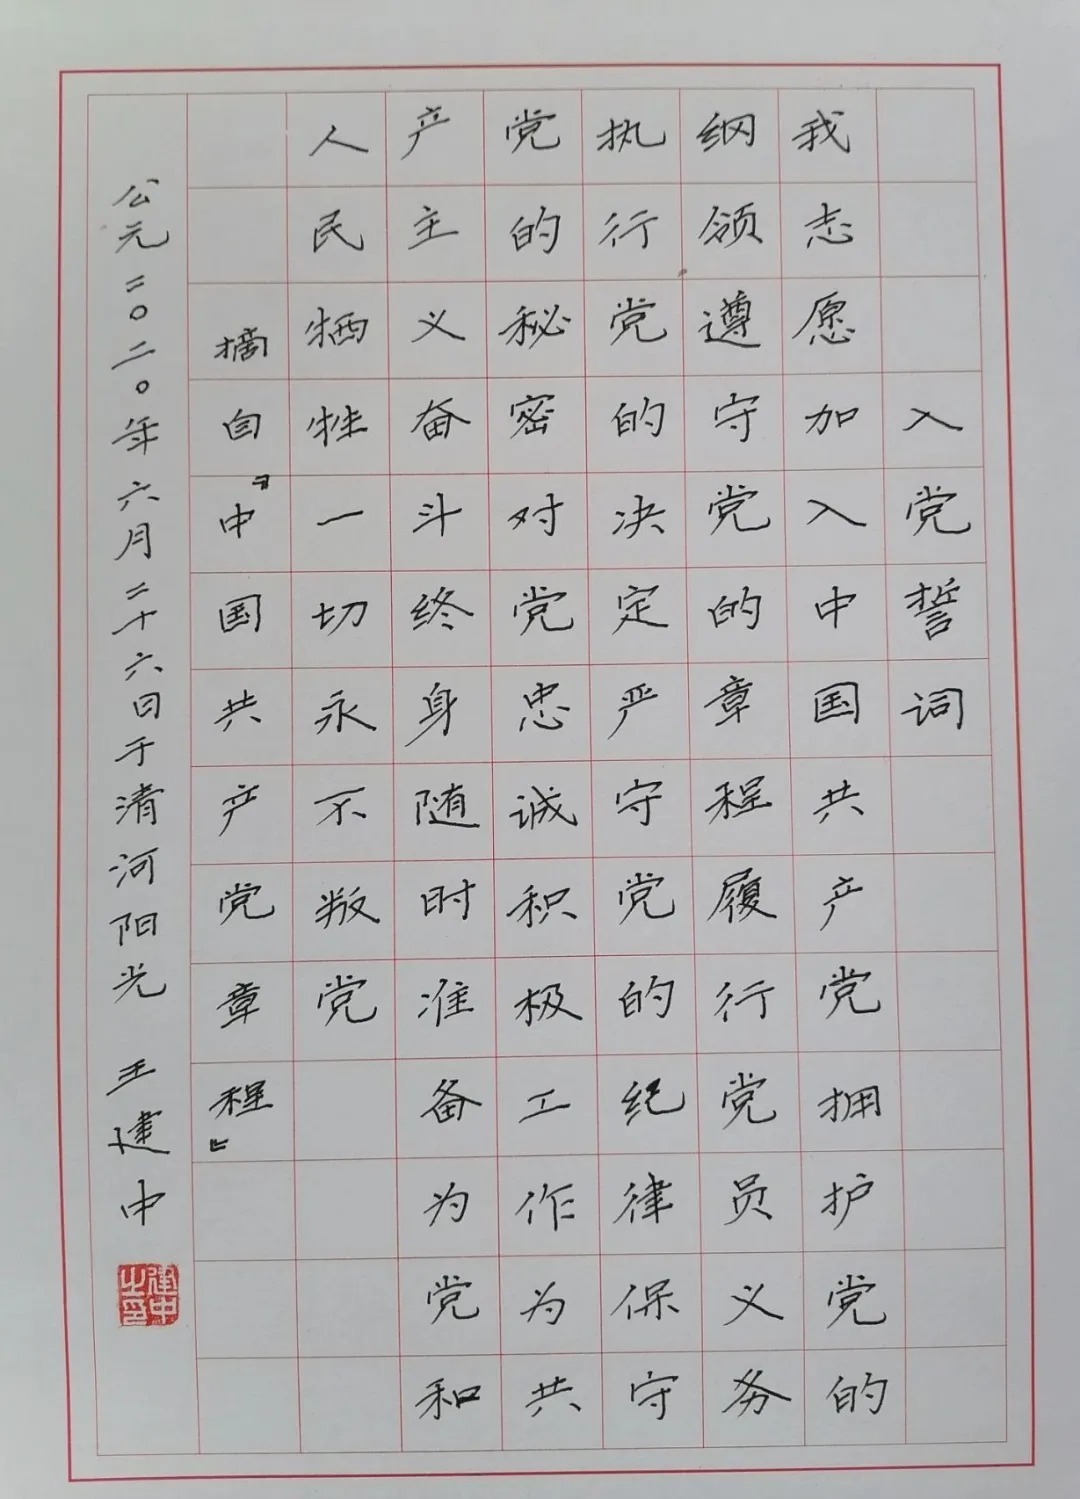 入党誓词
我志愿加入中国共产党拥护党的
纲领遵守党的章程履行党员义务
执行党的决定严守党的纪律保守
党的秘密对党忠诚积极工作为共
产主义奋斗终身随时准备为党和
人民牺牲一切永不叛党
摘自『中国共产党章程』
公元二〇二〇年六月二十六日于清河阳光 王建中
建中之印